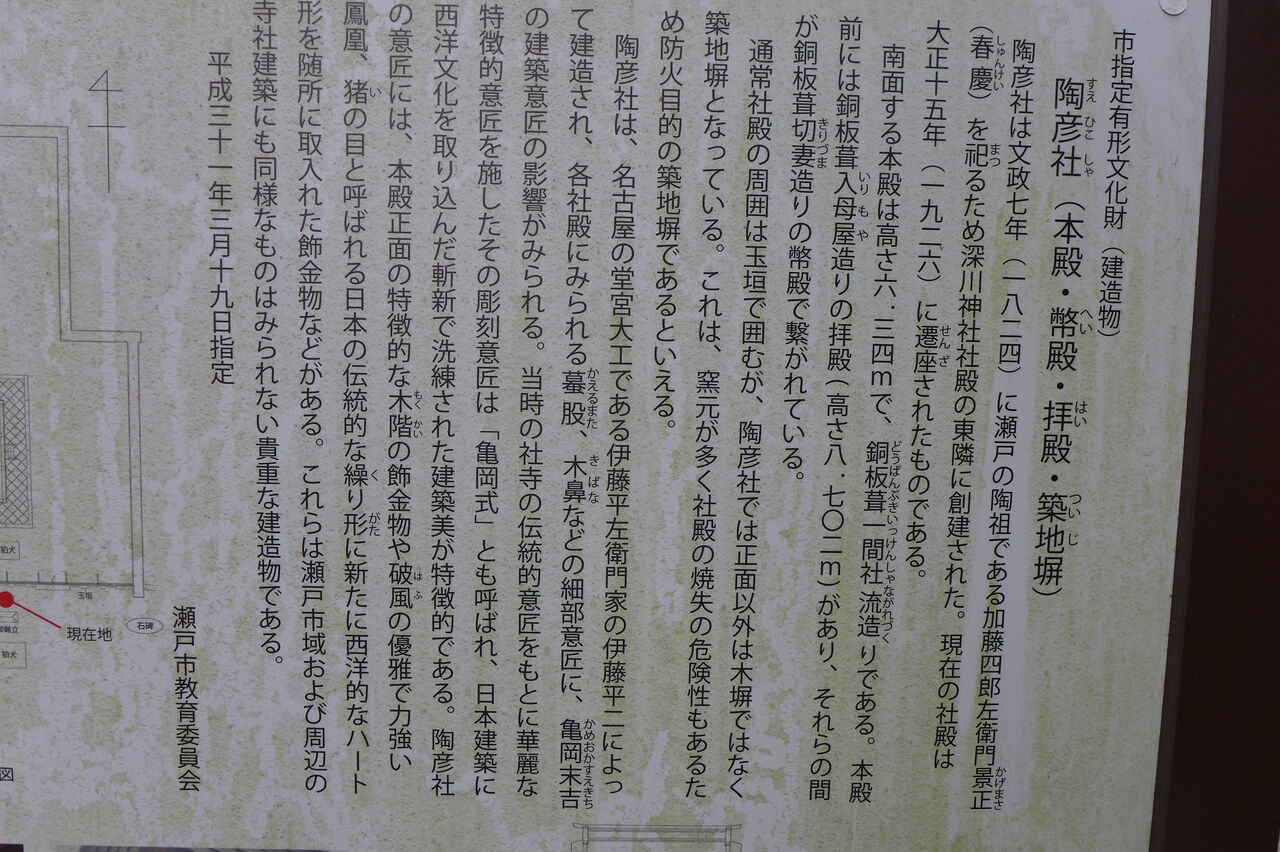 市指定有形文化財（建造物）
陶彦社（本殿・幣殿・拝殿・築地塀）
すえ ひこ しゃ へい はい つい じ
陶彦社は文政七年（一八二四）に瀬戸の陶祖である加藤四郎左衛門景正
かげまさ
（春慶）を祀るため深川神社社殿の東隣に創建された。現在の社殿は
しゅんけい まつ
大正十五年（一九二六）に遷座されたものである。
せんざ
南面する本殿は高さ六．三四mで、銅板葺一間社流造りである。本殿
どうばんぶきいっけんしゃながれづく
前には銅板葺入母屋造りの拝殿（高さ八．七〇二m）があり、それらの間
いりもや
が銅板葺切妻造りの幣殿で繋がれている。
きりづま
通常社殿の周囲は玉垣で囲むが、陶彦社では正面以外は木塀ではなく
築地塀となっている。これは、窯元が多く社殿の焼失の危険性もあるた
め防火目的の築地塀であるといえる。
陶彦社は、名古屋の堂宮大工である伊藤平左衛門家の伊藤平二によっ
て建造され、各社殿にみられる蟇股、木鼻などの細部意匠に、亀岡末吉
かえるまた きばな かめおかすえきち
の建築意匠の影響がみられる。当時の社寺の伝統的意匠をもとに華麗な
特徴的意匠を施したその彫刻意匠は「亀岡式」とも呼ばれ、日本建築に
西洋文化を取り込んだ斬新で洗練された建築美が特徴的である。陶彦社
の意匠には、本殿正面の特徴的な木階の飾金物や破風の優雅で力強い
もくかい はふ
鳳凰、猪の目と呼ばれる日本の伝統的な繰り形に新たに西洋的なハート
い く がた
形を随所に取入れた飾金物などがある。これらは瀬戸市域および周辺の
寺社建築にも同様なものはみられない貴重な建造物である。
平成三十一年三月十九日指定
瀬戸市教育委員会
石碑
玉垣
現在地
狛犬
狛犬
図